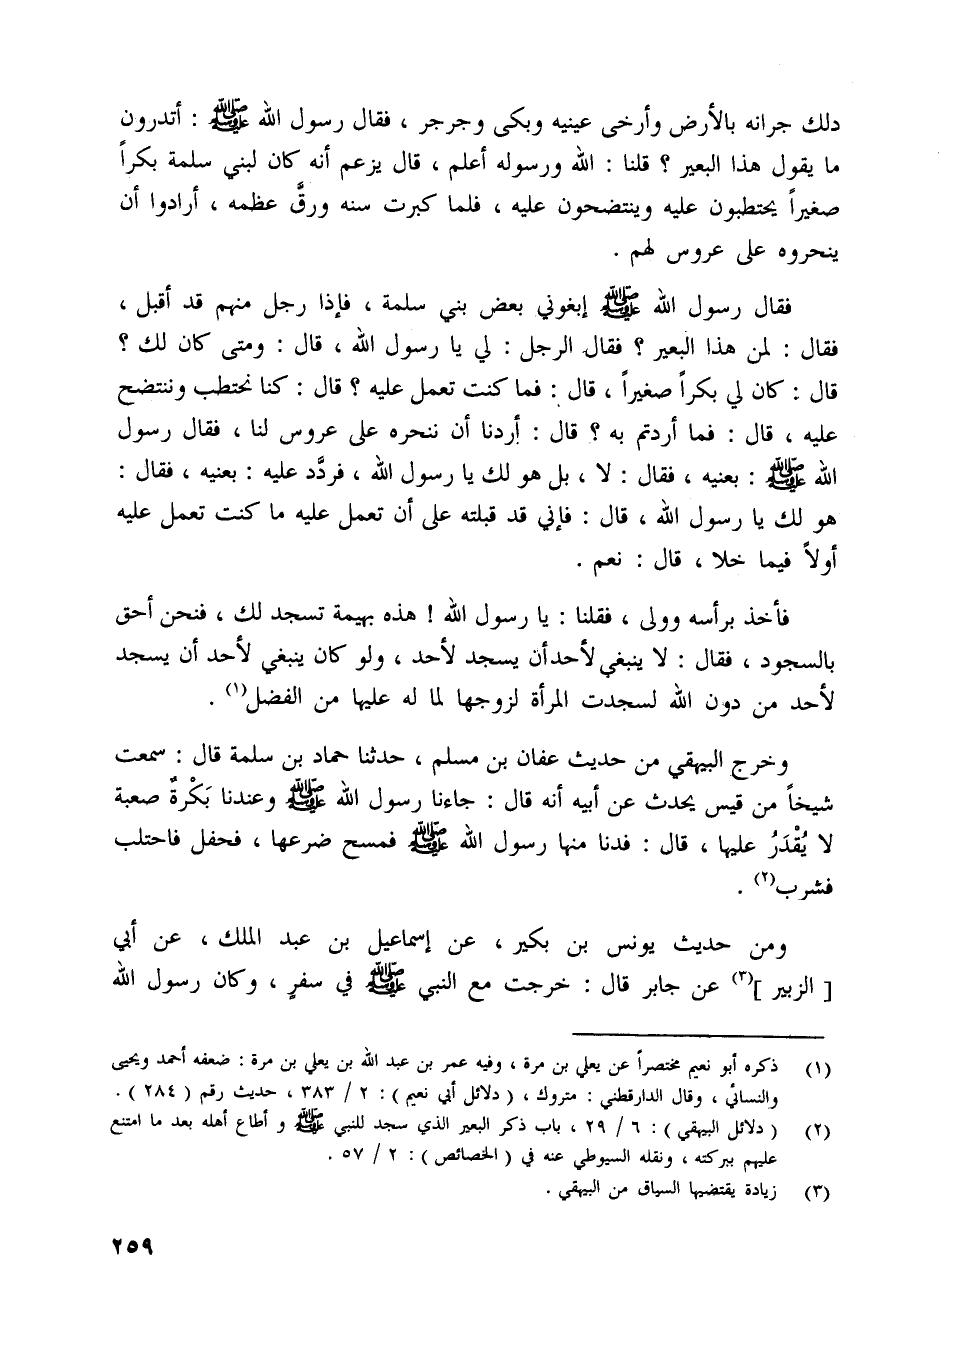 دلك جرانه بالأرض وأرخى عينيه وبكى وجرجر ، فقال رسول الله ﷺ : أتدرون
ما يقول هذا البعير ؟ قلنا : الله ورسوله أعلم ، قال يزعم أنه كان لبني سلمة بكراً
صغيراً يحتطبون عليه وينتضحون عليه ، فلما كبرت سنه ورقَّ عظمه ، أرادوا أن
ينحروه على عروس لهم .
فقال رسول الله ﷺ إبغوني بعض بني سلمة ، فإذا رجل منهم قد أقبل ،
فقال : لمن هذا البعير ؟ فقال الرجل : لي يا رسول الله ، قال : ومتى كان لك ؟
قال : كان لي بكراً صغيراً ، قال : فما كنت تعمل عليه ؟ قال : كنا نحتطب وننتضح
عليه ، قال : فما أردتم به ؟ قال : أردنا أن ننحره على عروس لنا ، فقال رسول
الله ﷺ : بعنيه ، فقال : لا ، بل هو لك يا رسول الله ، فردَّد عليه : بعنيه ، فقال :
هو لك يا رسول الله ، قال : فإني قد قبلته على أن تعمل عليه ما كنت تعمل عليه
أولاً فيما خلا ، قال : نعم .
فأخذ برأسه وولى ، فقلنا : يا رسول الله ! هذه بهيمة تسجد لك ، فنحن أحق
بالسجود ، فقال : لا ينبغي لأحدأن يسجد لأحد ، ولو كان ينبغي لأحد أن يسجد
لأحد من دون الله لسجدت المرأة لزوجها لما له عليها من الفضل(١) .
وخرج البيهقي من حديث عفان بن مسلم ، حدثنا حماد بن سلمة قال : سمعت
شيخاً من قيس يحدث عن أبيه أنه قال : جاءنا رسول الله ﷺ وعندنا بَكْرةٌ صعبة
لا يُقْدَرُ عليها ، قال : فدنا منها رسول الله ﷺ فمسح ضرعها ، فحفل فاحتلب
فشرب(٢) .
ومن حديث يونس بن بكير ، عن إسماعيل بن عبد الملك ، عن أبي
[ الزبير ](٣) عن جابر قال : خرجت مع النبي ﷺ في سفرٍ ، وكان رسول الله
(١) ذكره أبو نعيم مختصراً عن يعلي بن مرة ، وفيه عمر بن عبد الله بن يعلي بن مرة : ضعفه أحمد ويحيى
والنسائي ، وقال الدارقطني : متروك ، ( دلائل أبي نعيم ) : ٢ / ٣٨٣ ، حديث رقم ( ٢٨٤ ) .
(٢) ( دلائل البيهقي ) : ٦ / ٢٩ ، باب ذكر البعير الذي سجد للنبي ﷺ و أطاع أهله بعد ما امتنع
عليهم ببركته ، ونقله السيوطي عنه في ( الخصائص ) : ٢ / ٥٧ .
(٣) زيادة يقتضيها السياق من البيهقي .
٢٥٩